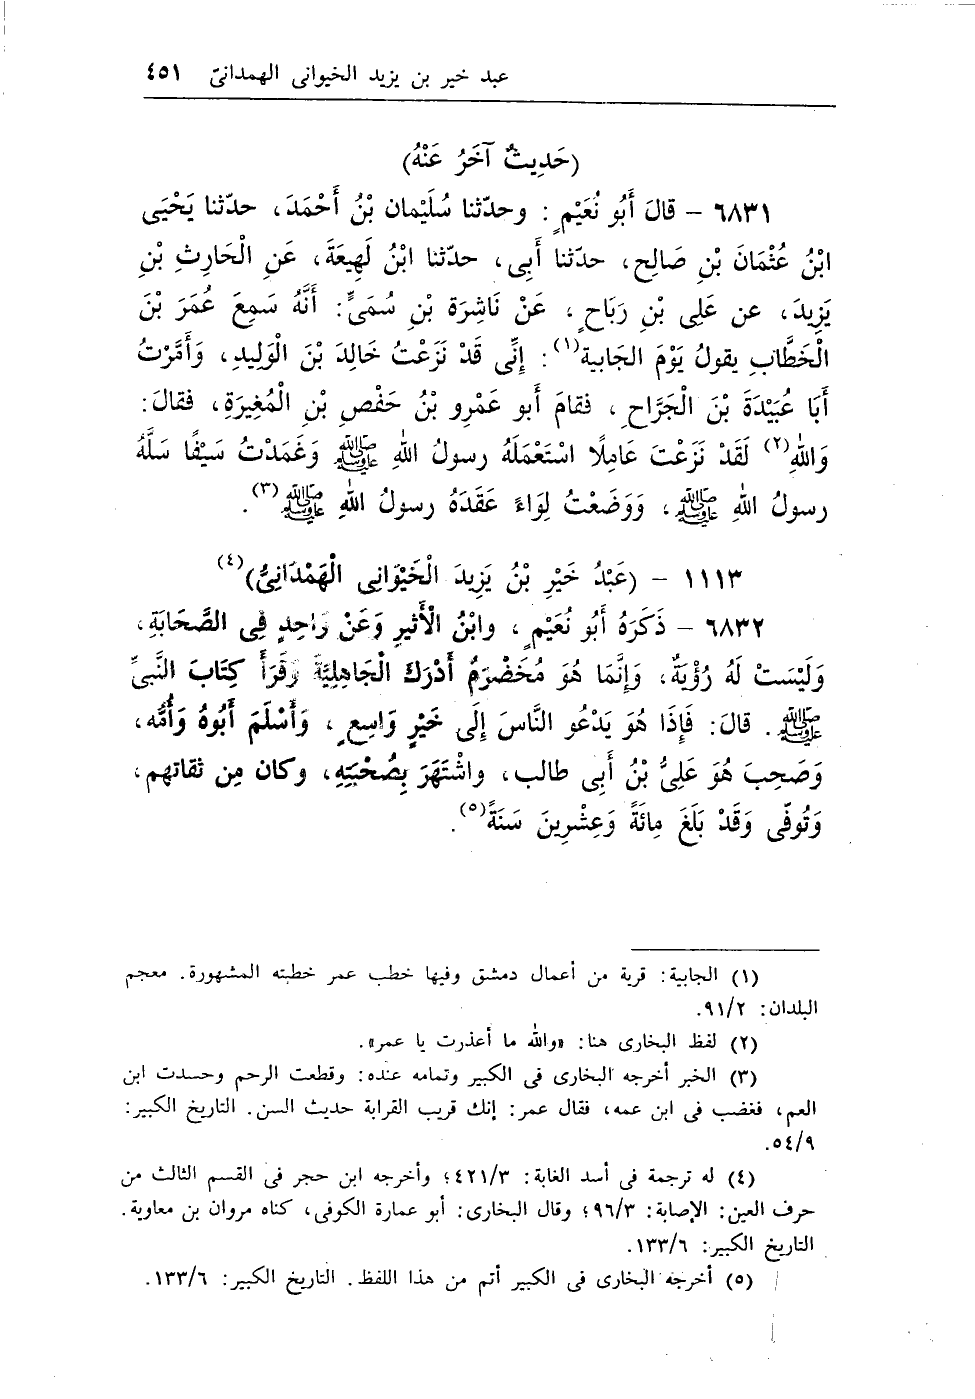 عبد خير بن يزيد الخيوانى الهمدانىّ ٤٥١
(حَدِيثٌ آخَرُ عَنْهُ)
٦٨٣١ – قالَ أَبُو نُعَيْمٍ : وحدّثنا سُلَيْمان بْنُ أَحْمَدَ، حدّثنا يَحْيَى
ابْنُ عُثْمَانَ بْنِ صَالِحٍ، حدّثنا أَبِى، حدّثنا ابْنُ لَهِيعَةَ، عَنِ الْحَارِثِ بْنِ
يَزِيدَ، عن عَلِى بْنِ رَبَاحٍ ، عَنْ نَاشِرَة بْنِ سُمَىٍّ: أَنَّهُ سَمِعَ عُمَرَ بْنَ
الْخَطَّابِ يقولُ يَوْمَ الجَابية(١) : إِنِّى قَدْ نَزَعْتُ خَالِدَ بْنَ الْوَلِيدِ، وَأَمَّرْتُ
أَبَا عُبَيْدَةَ بْنَ الْجَرَّاحِ ، فقامَ أبو عَمْرِو بْنُ حَفْصِ بْنِ الْمُغِيرَةِ، فقالَ:
وَاللهِ(٢) لَقَدْ نَزَعْتَ عَامِلًا اسْتَعْمَلَهُ رسولُ اللهِ ﷺ وَغَمَدْتَ سَيْفًا سَلَّهُ
رسولُ اللهِ ﷺ، وَوَضَعْتُ لِوَاءً عَقَدَهُ رسولُ اللهِ ﷺ(٣).
١١١٣ – (عَبْدُ خَيْرِ بْنُ يَزِيدَ الْخَيْوَانِى الْهَمْدَانِىُّ)(٤)
٦٨٣٢ – ذَكَرَهُ أَبُو نُعَيْمٍ ، وابْنُ الْأَثيرِ وَعَنْ وَاحِدٍ فِى الصَّحَابَةِ،
وَلَيْسَتْ لَهُ رُؤْيَةٌ، وَإِنَّمَا هُوَ مُخَضْرَمٌ أَدْرَكَ الْجَاهِلِيَّةَ وَقَرَأَ كِتَابَ النَّبىِّ
ﷺ. قالَ: فَإِذَا هُوَ يَدْعُو النَّاسَ إِلَى خَيْرٍ وَاسِعٍ ، وَأَسْلَمَ أَبُوهُ وَأُمُّه،
وَصَحِبَ هُوَ عَلِىُّ بْنُ أَبِى طالب، واشْتَهَرَ بِصُحْبَتِهِ، وكان مِن ثقاتهم،
وَتُوفّى وَقَدْ بَلَغَ مِائَةً وَعِشْرِينَ سَنَةً(٥).
(١) الجابية: قرية من أعمال دمشق وفيها خطب عمر خطبته المشهورة. معجم
البلدان: ٩١/٢.
(٢) لفظ البخارى هنا: «والله ما أعذرت يا عمر».
(٣) الخبر أخرجه البخارى فى الكبير وتمامه عنده: وقطعت الرحم وحسدت ابن
العم، فغضب فى ابن عمه، فقال عمر: إنك قريب القرابة حديث السن. التاريخ الكبير:
٥٤/٩.
(٤) له ترجمة فى أسد الغابة: ٤٢١/٣؛ وأخرجه ابن حجر فى القسم الثالث من
حرف العين: الإصابة: ٩٦/٣؛ وقال البخارى: أبو عمارة الكوفى، كناه مروان بن معاوية.
التاريخ الكبير: ١٣٣/٦.
(٥) أخرجه البخارى فى الكبير أتم من هذا اللفظ. التاريخ الكبير: ١٣٣/٦.